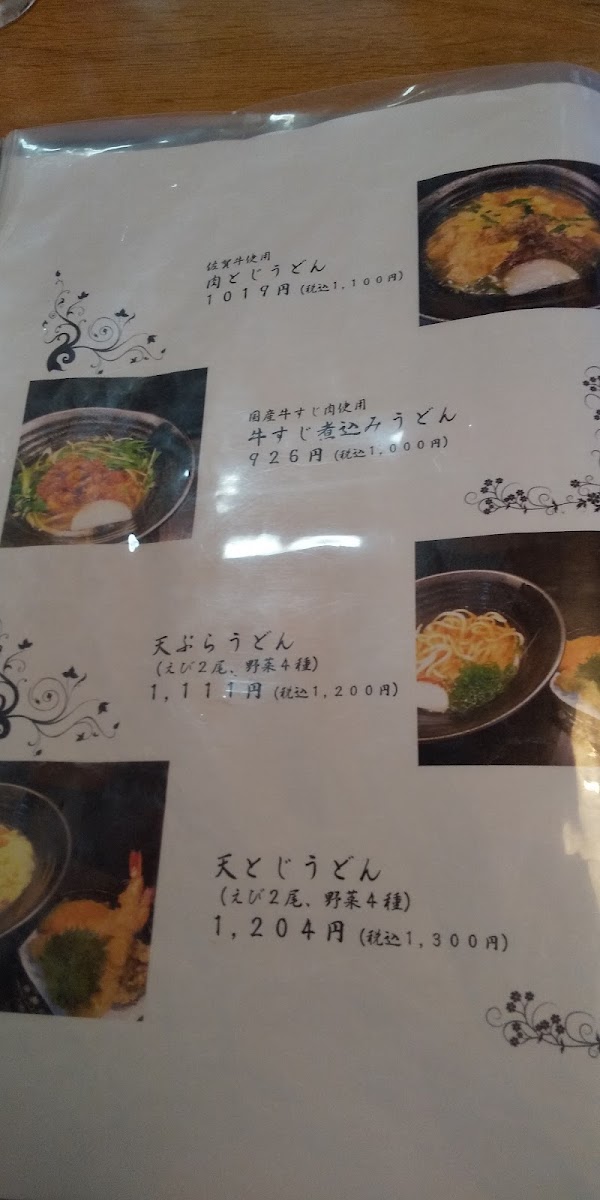 佐賀牛使用
肉とじうどん
1019円 (税込1,100円)
国産牛すじ肉使用
牛すじ煮込みうどん
926円 (税込1,000円)
天ぷらうどん
(えび2尾、野菜4種)
1,111円 (税込1,200円)
天とじうどん
(えび2尾、野菜4種)
1,204円 (税込1,300円)